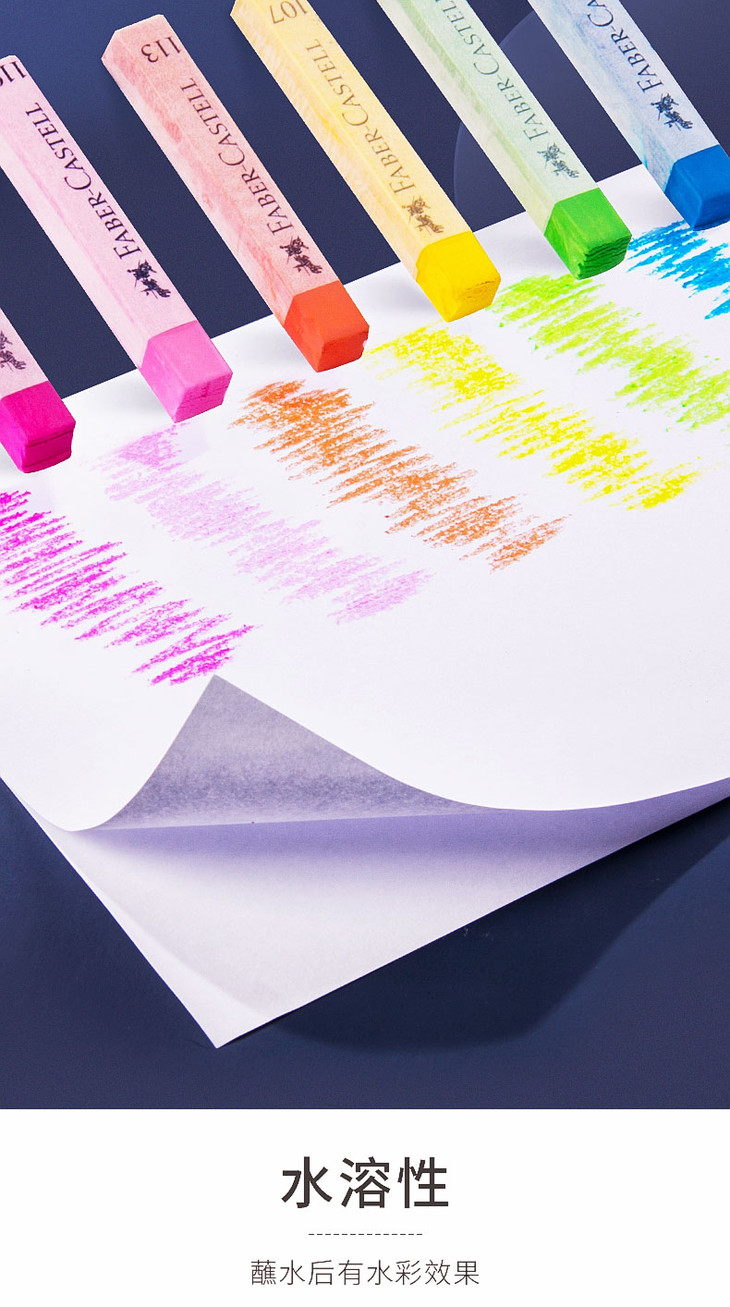 FABER-CASTELL
113
FABER-CASTELL
107
FABER-CASTELL
FABER-CASTELL
FABER-CA
水溶性
蘸水后有水彩效果